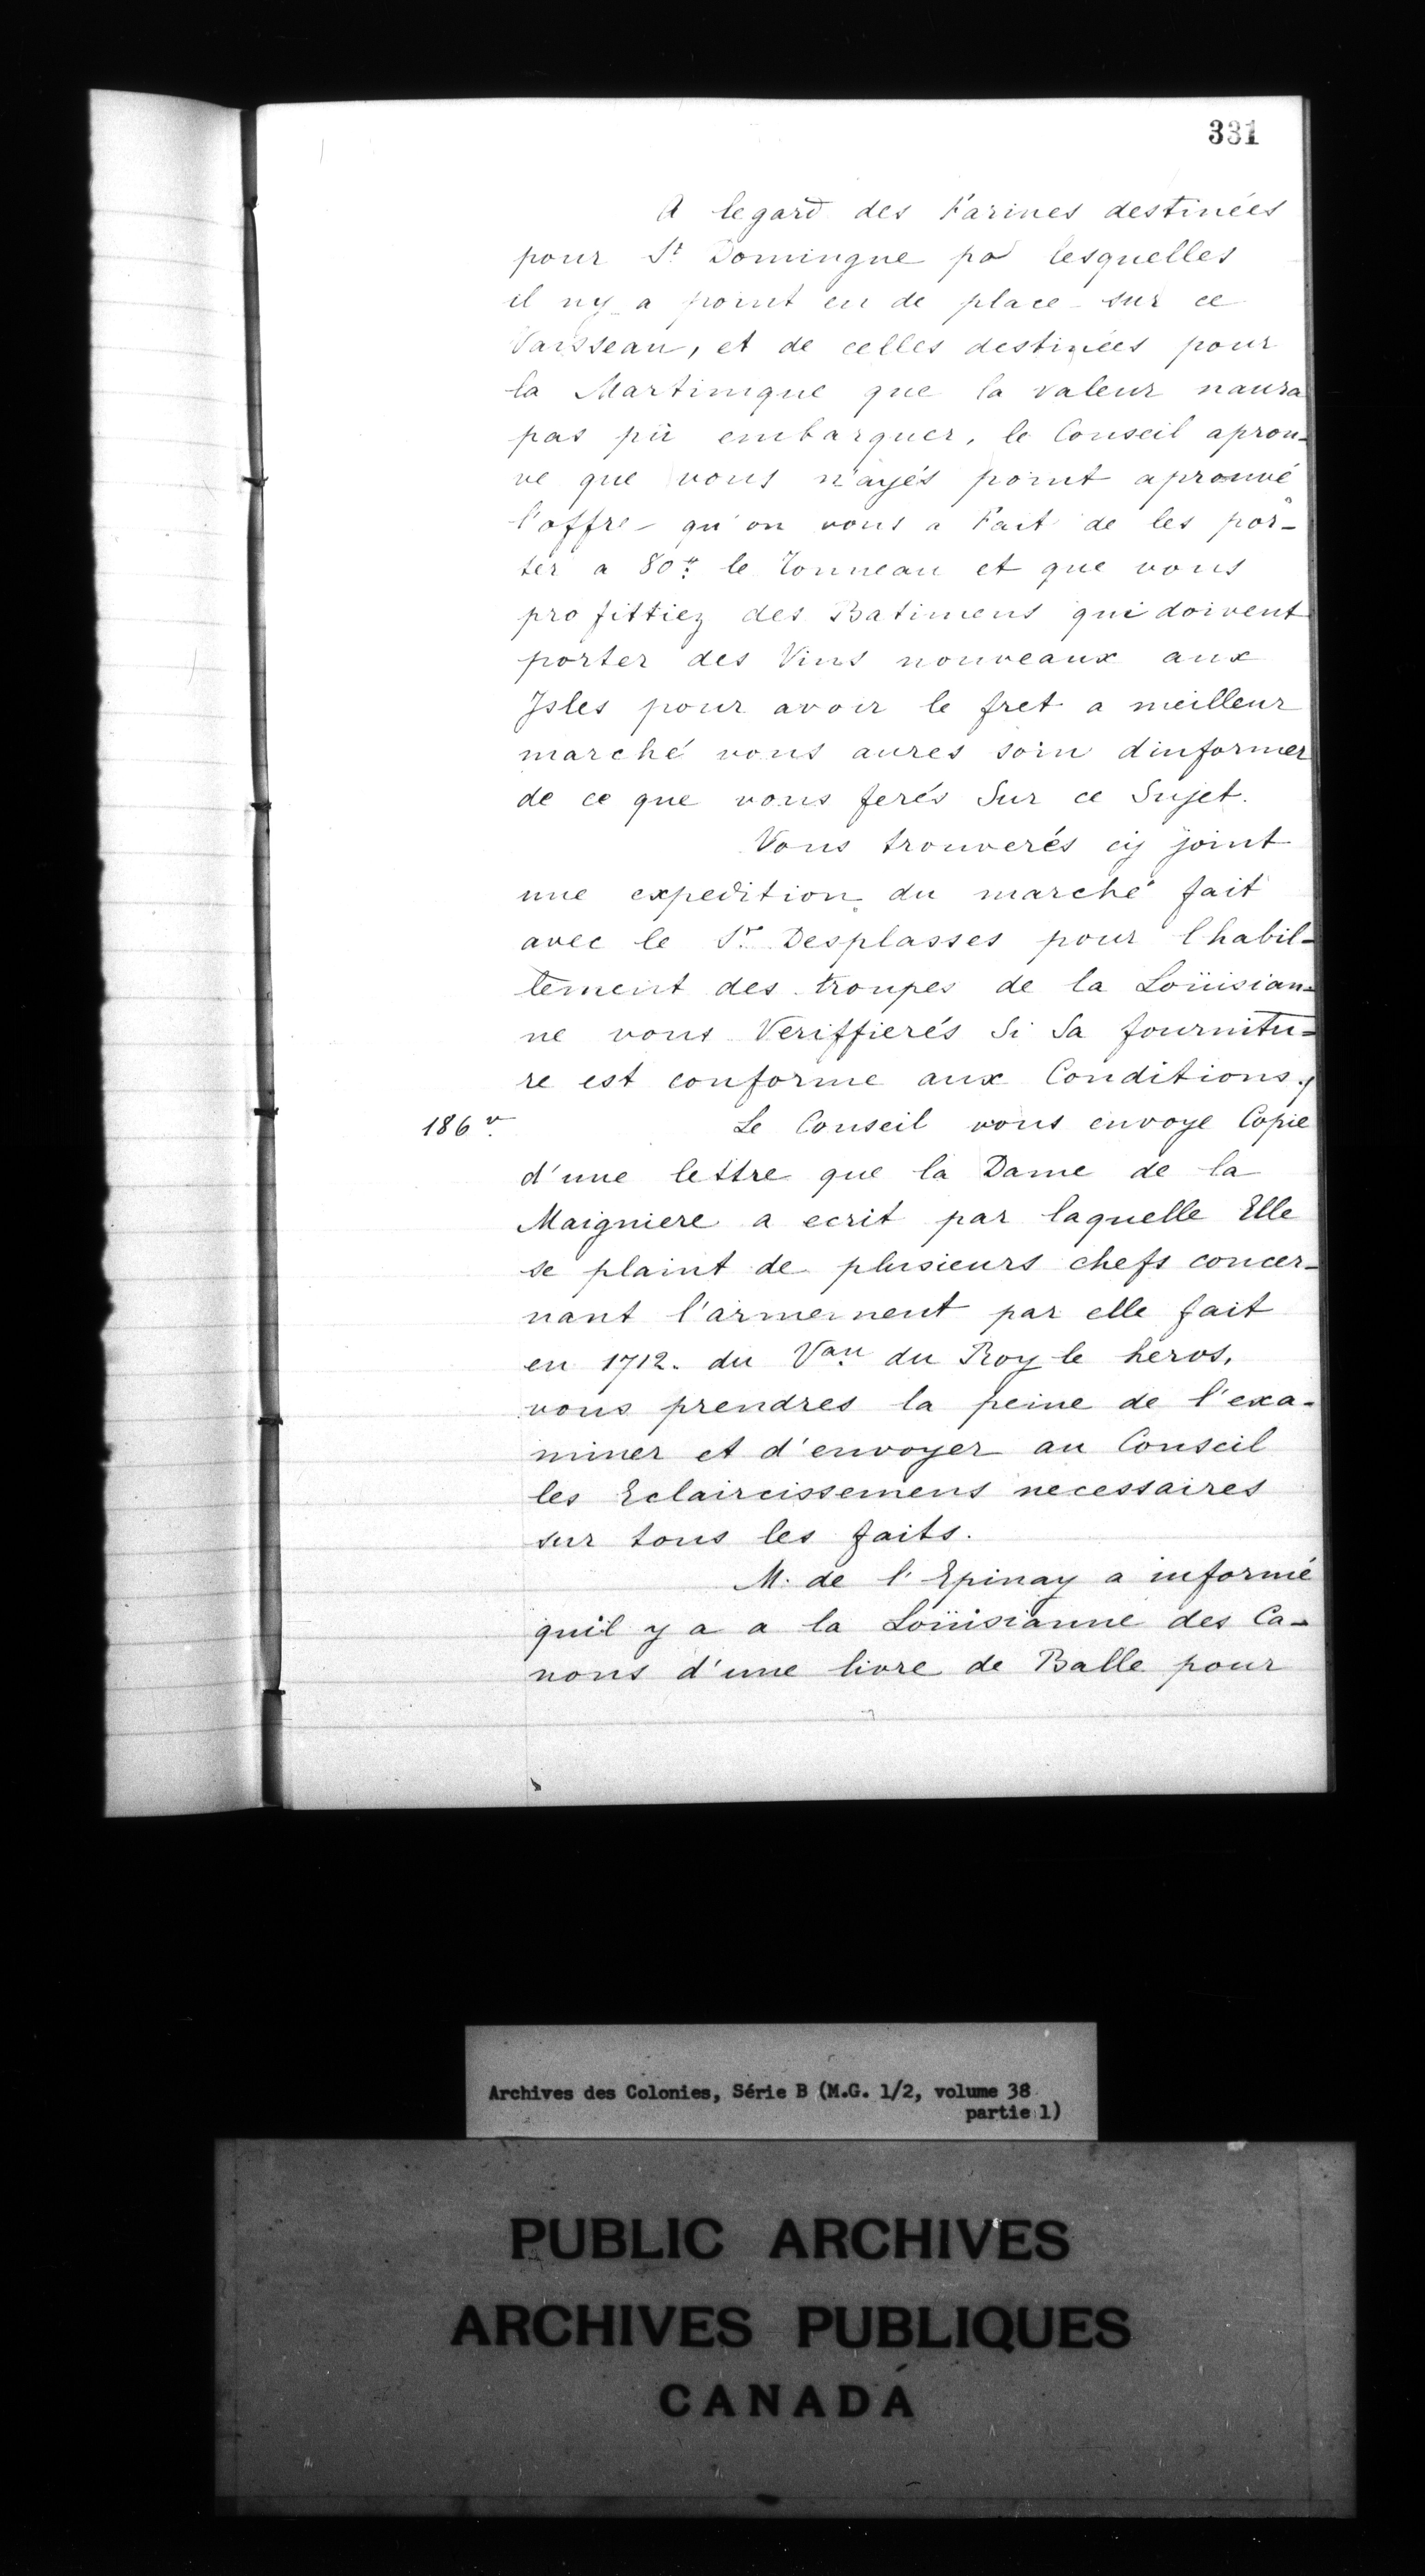 331
A legard des Farines destinées
pour St Domingue po lesquelles
il ny a point eu de place sur ce
Vaisseau, et de celles destinées pour
la Martinique que la valeur naura
pas pû embarquer, le Conseil aprou-
ve que vous n'ayés point aprouvé
l'offre qu'on vous a Fait de les por-
ter a 80tt le Tonneau et que vous
profittiez des Batimens qui doivent
porter des Vins nouveaux aux
Isles pour avoir le fret a meilleur
marché vous aures soin dinformer
de ce que vous ferés Sur ce Sujet.
Vous trouverés cy joint
une expedition du marché fait
avec le Sr Desplasses pour lhabil-
lement des troupes de la Loüisian-
ne vous Veriffierés Si Sa fournitu-
re est conforme aux Conditions.
186 v.
Le Conseil vous envoye Copie
d'une lettre que la Dame de la
Maigniere a ecrit par laquelle Elle
se plaint de plusieurs chefs concer-
nant l'armement par elle fait
en 1712. du Vau du Roy le heros,
vous prendres la peine de l'exa-
miner et d'envoyer au Conseil
les Eclaircissemens necessaires
sur tous les faits.
M. de l'Epinay a informé
quil y a a la Loüisianne des Ca-
nons d'une livre de Balle pour
Archives des Colonies, Série B (M.G. 1/2, volume 38
partie 1)
PUBLIC ARCHIVES
ARCHIVES PUBLIQUES
CANADA